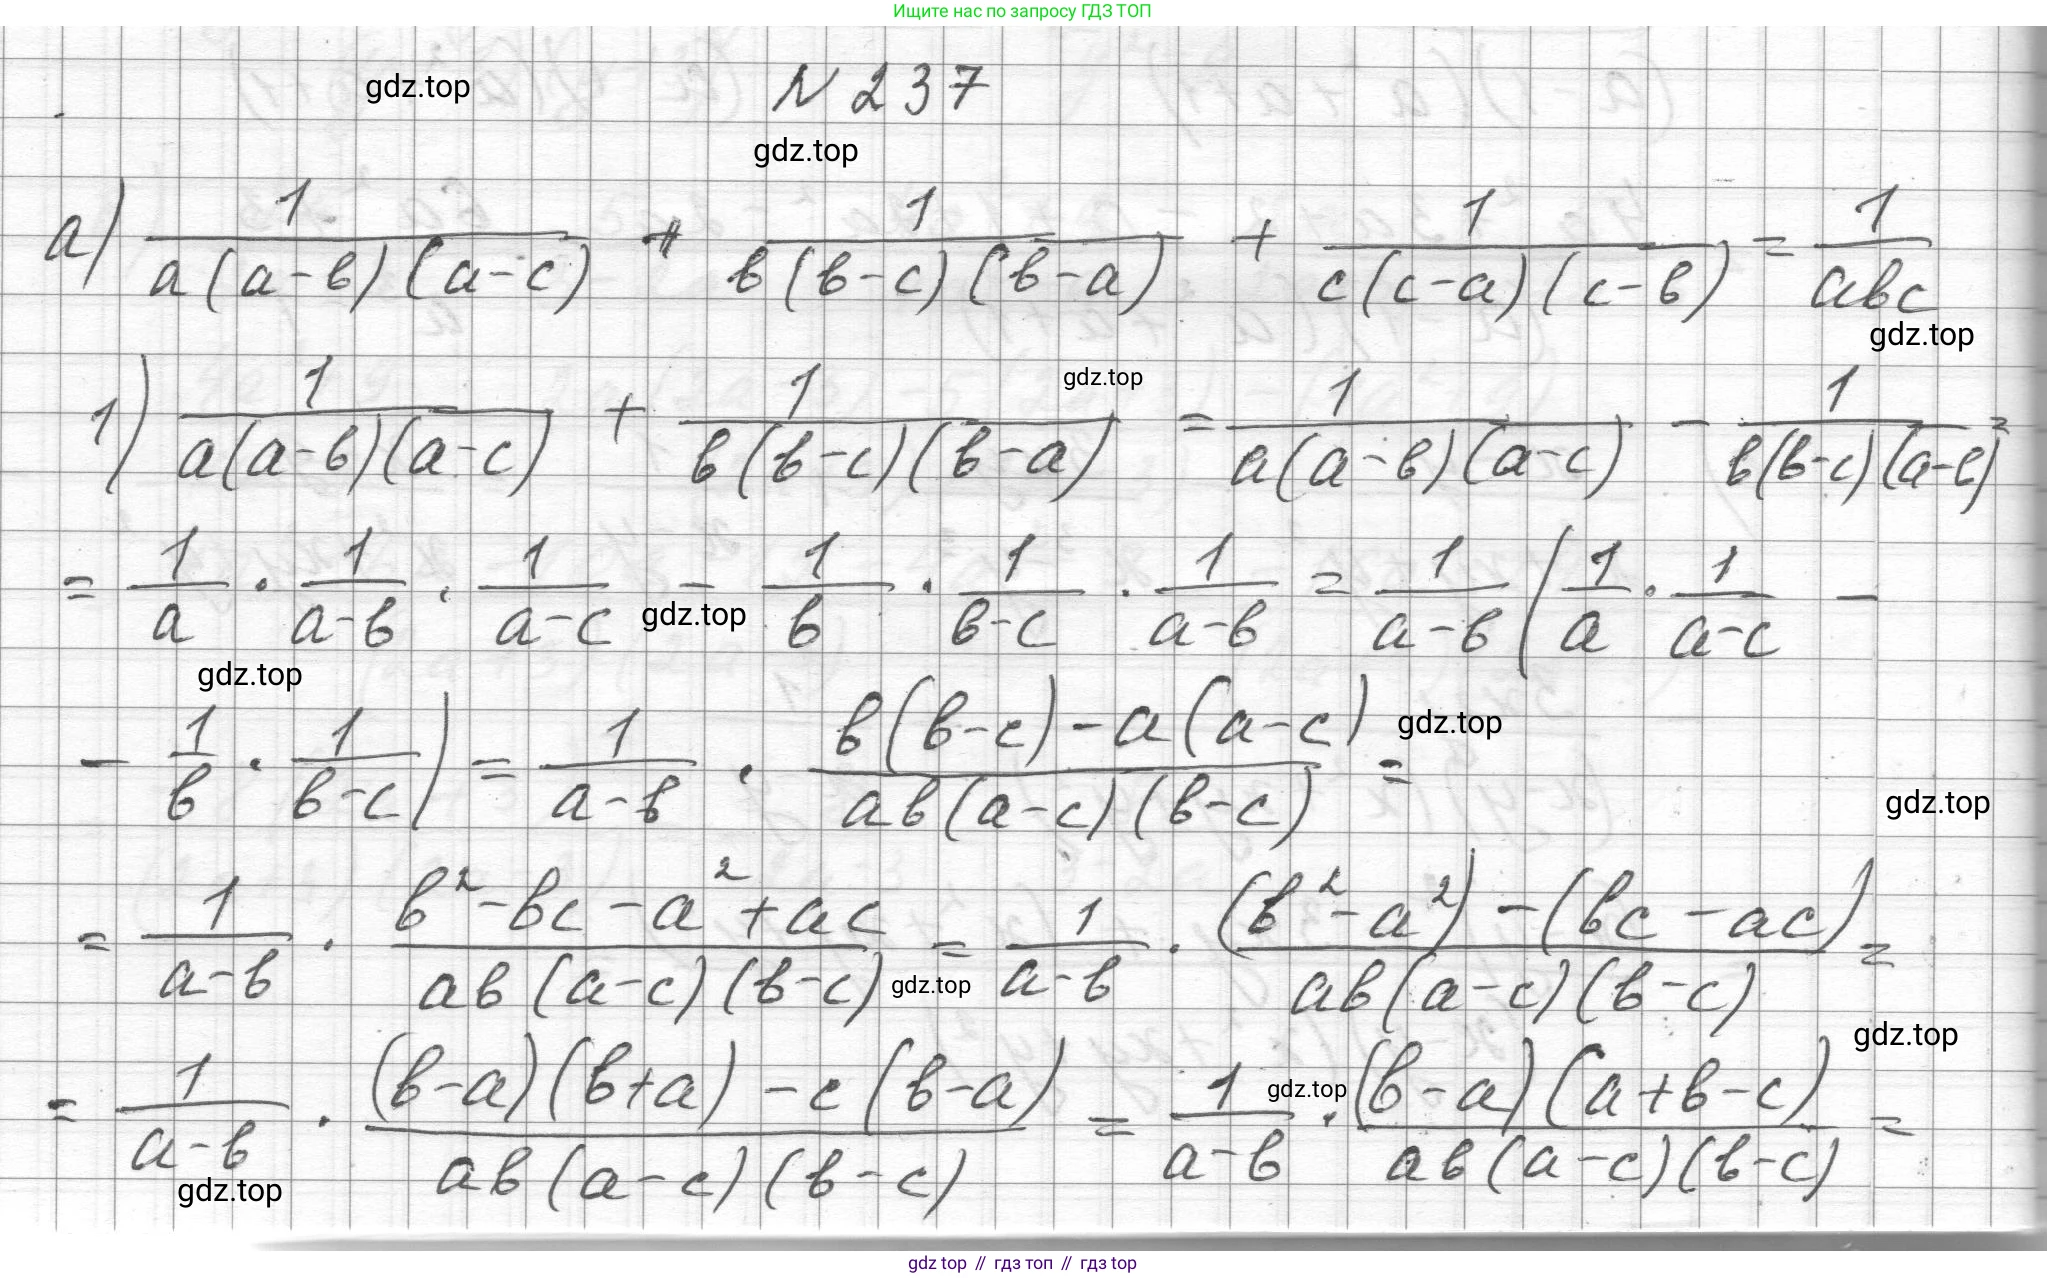 Ищите нас по запросу ГДЗ ТОП
gdz.top
N 237
gdz.top
а) 1/(a(a-в)(a-c)) + 1/(в(в-c)(в-a)) + 1/(c(c-a)(c-в)) = 1/(aвc)
gdz.top
gdz.top
1) 1/(a(a-в)(a-c)) + 1/(в(в-c)(в-a)) = 1/(a(a-в)(a-c)) - 1/(в(в-c)(a-в)) =
= 1/a · 1/(a-в) · 1/(a-c) - 1/в · 1/(в-c) · 1/(a-в) = 1/(a-в) (1/a · 1/(a-c) -
gdz.top
gdz.top
- 1/в · 1/(в-c)) = 1/(a-в) · (в(в-c)-a(a-c))/(aв(a-c)(в-c)) =
gdz.top
gdz.top
= 1/(a-в) · (в²-вc-a²+ac)/(aв(a-c)(в-c)) = 1/(a-в) · ((в²-a²)-(вc-ac))/(aв(a-c)(в-c)) =
gdz.top
gdz.top
= 1/(a-в) · ((в-a)(в+a)-c(в-a))/(aв(a-c)(в-c)) = 1/(a-в) · ((в-a)(a+в-c))/(aв(a-c)(в-c)) =
gdz.top
gdz.top
gdz top // гдз топ // gdz top